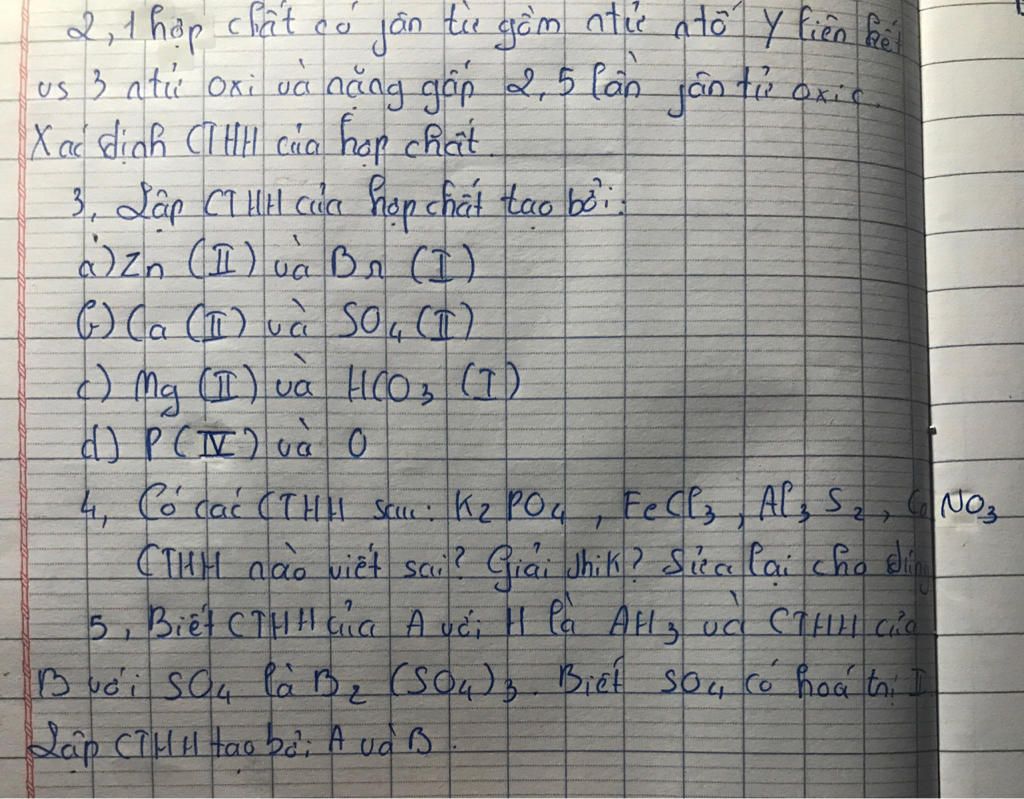 2, 1 hợp chất có fân tử gồm ntử ntố Y liên kết
vs 3 ntử oxi và nặng gấp 2,5 lần fân tử oxi.
Xác định CTHH của hợp chất.
3, Lập CTHH của hợp chất tạo bởi:
a) Zn (II) và Br (I)
b) Ca (II) và SO4 (II)
c) Mg (II) và HCO3 (I)
d) P (IV) và O
4, Có các CTHH sau: K2PO4, FeCl3, Al3S2, NO3
CTHH nào viết sai? Giải thik? Sửa lại cho đúng
5, Biết CTHH của A với H là AH3 và CTHH của
B với SO4 là B2(SO4)3. Biết SO4 có hoá trị
Lập CTHH tạo bởi A và B.